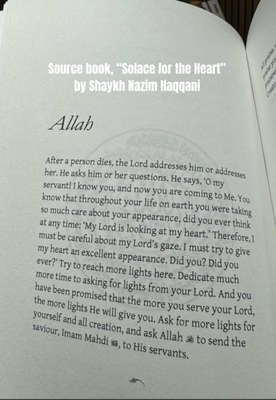 Source book, “Solace for the Heart”
by Shaykh Nazim Haqqani
Allah
After a person dies, the Lord addresses him or addresses
her. He asks him or her questions. He says, 'O my
servant! I know you, and now you are coming to Me. You
know that throughout your life on earth you were taking
so much care about your appearance, did you ever think
at any time: 'My Lord is looking at my heart.' Therefore, I
must be careful about my Lord's gaze. I must try to give
my heart an excellent appearance. Did you? Did you
ever?' Try to reach more lights here. Dedicate much
more time to asking for lights from your Lord. And you
have been promised that the more you serve your Lord,
the more lights He will give you. Ask for more lights for
yourself and all creation, and ask Allah to send the
saviour, Imam Mahdi , to His servants.